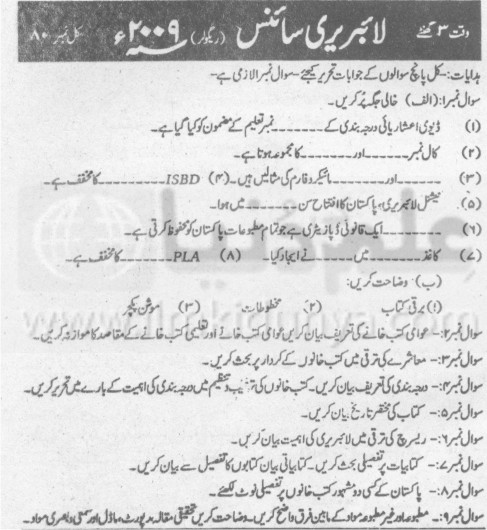 وقت ۳ گھنٹے لائبریری سائنس (ریگولر) ۲۰۰۹ء کل نمبر ۸۰
ہدایات:- کل پانچ سوالوں کے جوابات تحریر کیجئے۔ سوال نمبر ۱ لازمی ہے۔
سوال نمبر۱: (الف) خالی جگہ پُر کریں۔
(۱) ڈیوی اعشاریائی درجہ بندی کے ------- نمبر تعلیم کے مضمون کو کیا گیا ہے۔
(۲) کال نمبر ------ اور ------- کا مجموعہ ہوتا ہے۔
(۳) ------ اور ------ مائیکرو فارم کی مثالیں ہیں۔ (۴) ISBD -------- کا مخفف ہے۔
(۵) نیشنل لائبریری، پاکستان کا افتتاح سن ------ میں ہوا۔
(۶) -------- ایک قانونی ڈپازیٹری ہے جو تمام مطبوعات پاکستان کو محفوظ کرتی ہے۔
(۷) کاغذ ------ میں ------ نے ایجاد کیا۔ (۸) PLA -------- کا مخفف ہے۔
(ب) وضاحت کریں:
(۱) برقی کتاب (۲) مخطوطات (۳) موشن پکچر
سوال نمبر۲:- عوامی کتب خانے کی تعریف بیان کریں عوامی کتب خانے اور تعلیمی کتب خانے کے مقاصد کا موازنہ کریں۔
سوال نمبر۳:- معاشرے کی ترقی میں کتب خانوں کے کردار پر بحث کریں۔
سوال نمبر۴:- درجہ بندی کی تعریف بیان کریں۔ کتب خانوں کی ترتیب و تنظیم میں درجہ بندی کی اہمیت کے بارے میں تحریر کریں۔
سوال نمبر۵:- کتاب کی مختصر تاریخ بیان کریں۔
سوال نمبر۶:- ریسرچ کی ترقی میں لائبریری کی اہمیت بیان کریں۔
سوال نمبر۷:- کتابیات پر تفصیلی بحث کریں۔ کتابیاتی بیان کتابوں کا تفصیل سے بیان کریں۔
سوال نمبر۸:- پاکستان کے کسی دو مشہور کتب خانوں پر تفصیلی نوٹ لکھئے۔
سوال نمبر۹:- مطبوعہ اور غیر مطبوعہ مواد کے مابین فرق واضح کریں۔ وضاحت کریں تحقیقی مقالہ، رپورٹ، ماڈل اور سمعی و بصری مواد۔
علم کی دنیا
www.ilmkidunya.com